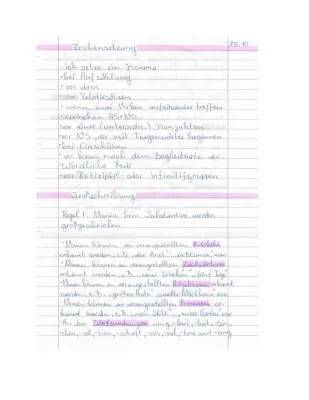 Zeichensetzung 25.10
Ich setze ein Komma:
• bei Aufzählung
• vor dass
• vor Relativsätzen
• wenn zwei Verben aufeinander treffen
• zwischen HS+NS
• vor einer (unterordn.) Konjunktion
• vor NS, die mit Fragewörter beginnen
• bei Einschüben
• vor bzw nach dem Begleitsatz der
wörtliche Rede
• vor Partizipial- oder Infinitivgruppen
Großschreibung
Regel 1: Namen bzw. Substantive werden
großgeschrieben
• Nomen können an vorangestellten Artikeln
erkannt werden, z.B. „der Arzt", „die Blumen"
• Nomen können an vorangestellten Zahlwörtern
erkannt werden, z.B. „zwei", „fünf Tage"
• Nomen können an vorangestellten Adjektiven erkannt
werden, z.B. „großes",
• Nomen können an vorangestellten Pronomen er-
kannt werden, z.B. „mein Stift",
• An den Wortendungen -ung, -heit, -keit, -lein,
-chen, -sal, -tum, -schaft, -nis, -sel, -ling und -ung